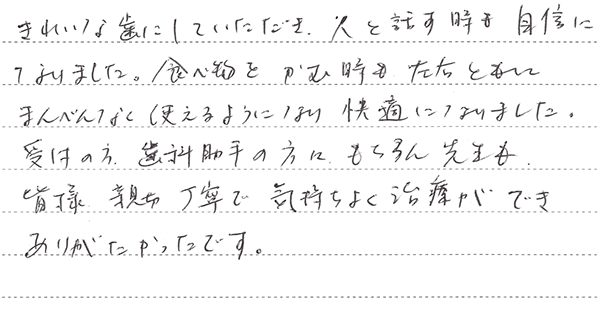 きれいな歯にしていただき、人と話す時も自信に
なりました。食べ物をかむ時も、左右ともに
まんべんなく使えるようになり快適になりました。
受付の方、歯科助手の方に、もちろん先生も、
皆様親切丁寧で気持ちよく治療ができ
ありがたかったです。